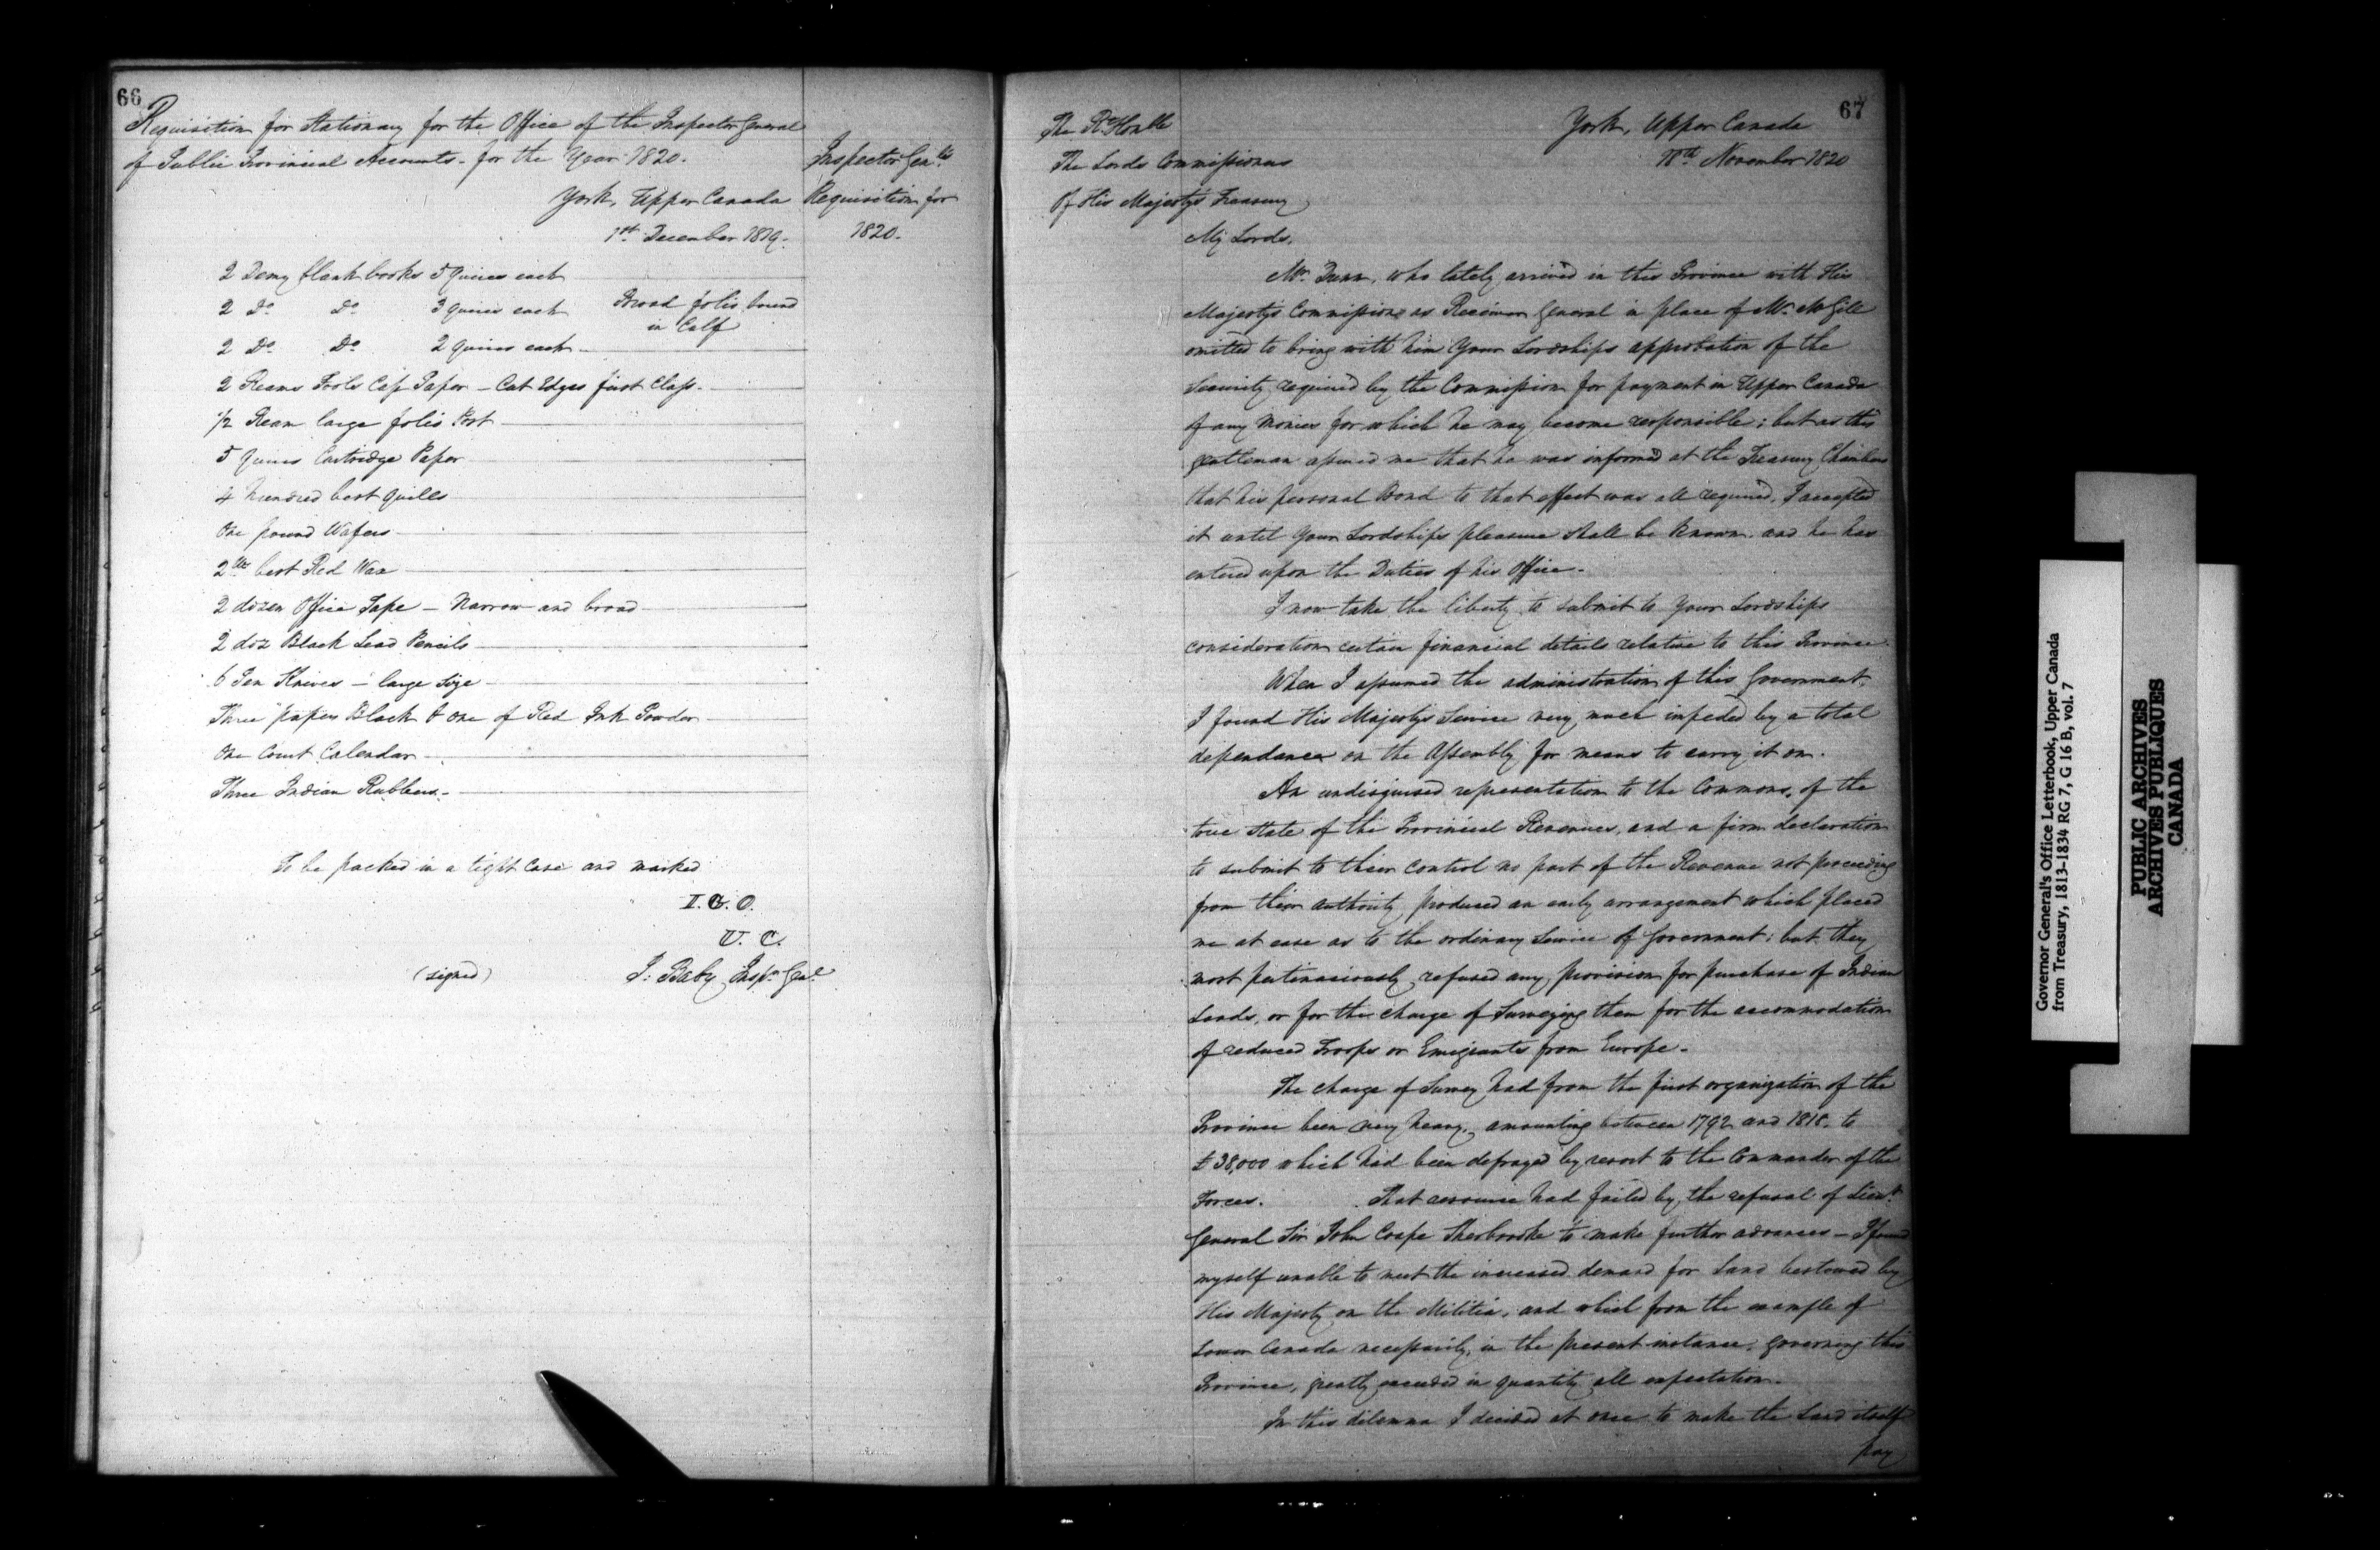 66
Requisition for Stationary for the Office of the Inspector General
of Public Provincial Accounts. for the Year 1820.
Inspector Genls
Requisition for
1820.
York, Upper Canada
1st December 1819.
2 Demy blank books 5 Quires each
2 Do Do 3 quires each Broad folio bound
in Calf
2 Do Do 2 quires each
2 Reams Fools Cap Paper - Cut Edges first Class.
1/2 Ream large folio Post
5 Quires Cartridge Paper
4 hundred best Quills
One pound Wafers
2 lbs best Red Wax
2 dozen Office Tape - Narrow and broad
2 doz Black Lead Pencils
6 Pen Knives - large Size
Three papers Black & one of Red Ink Powder
One Court Calendar
Three Indian Rubbers.
To be packed in a tight Case and marked
I. G. O.
U. C.
(signed) J: Baby Inspr Genl
67
York, Upper Canada
18th November 1820
The Rt Honble
The Lords Commissioners
Of His Majesty's Treasury
My Lords,
Mr Dunn, who lately arrived in this Province with His
Majesty's Commission as Receiver General in place of Mr McGill
omitted to bring with him Your Lordships approbation of the
Security required by the Commission for payment in Upper Canada
of any Monies for which he may become responsible; but as this
gentleman assured me that he was informed at the Treasury Chambers
that his personal Bond to that effect was all required, I accepted
it until Your Lordships pleasure shall be known. and he has
entered upon the Duties of his Office.
I now take the liberty to submit to Your Lordships
consideration certain financial details relative to this Province.
When I assumed the administration of this Government,
I found His Majestys Service very much impeded by a total
dependance on the Assembly for means to carry it on.
An undisguised representation to the Commons, of the
true State of the Provincial Revenues, and a firm declaration
to submit to their control no part of the Revenue not proceeding
from their authority, produced an early arrangement which placed
me at ease as to the ordinary Service of Government; but they
most pertinaciously refused any provision for purchase of Indian
Lands, or for the charge of Surveying them for the accommodation
of reduced Troops or Emigrants from Europe.
The charge of Survey had from the first organization of the
Province been very heavy, amounting between 1792 and 1818. to
£38,000 which had been defrayed by resort to the Commander of the
Forces. That resource had failed by the refusal of Lieut
General Sir John Coape Sherbrooke to make further advances - I found
myself unable to meet the increased demand for Land bestowed by
His Majesty on the Militia, and which from the example of
Lower Canada necessarily, in the present instance, governing this
Province, greatly exceeded in quantity all expectation.
In this dilemma I decided at once to make the Land itself
pay
Governor General's Office Letterbook, Upper Canada
from Treasury, 1813-1834 RG 7, G 16 B, vol. 7
PUBLIC ARCHIVES
ARCHIVES PUBLIQUES
CANADA